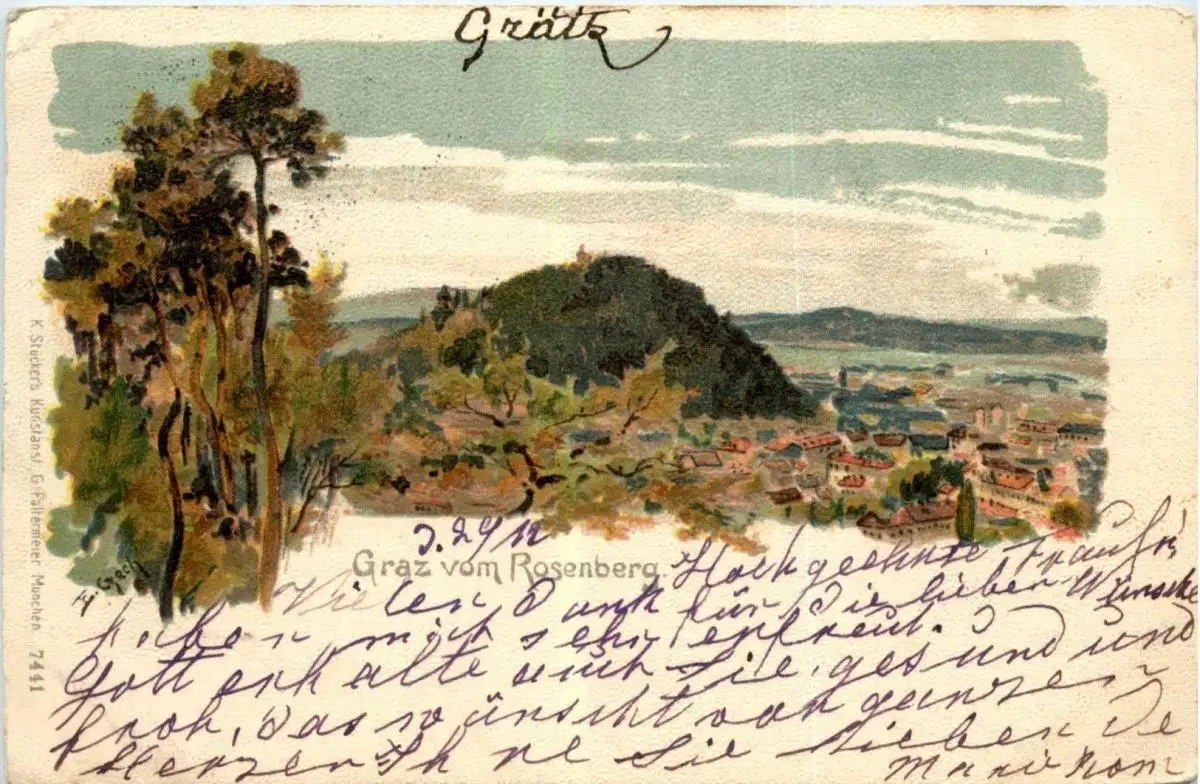 Grätz
K. Stücker's Kunstanst. G. Paltermeier München 7441
Graz vom Rosenberg.
29/12
Hochgeehrte
Vielen Dank für die lieben Wünsche
haben mich sehr erfreut.
Gott erhalte auch Sie, gesund und
froh, das wünscht von ganzen
Herzen Ihre Sie lieben de
Marie